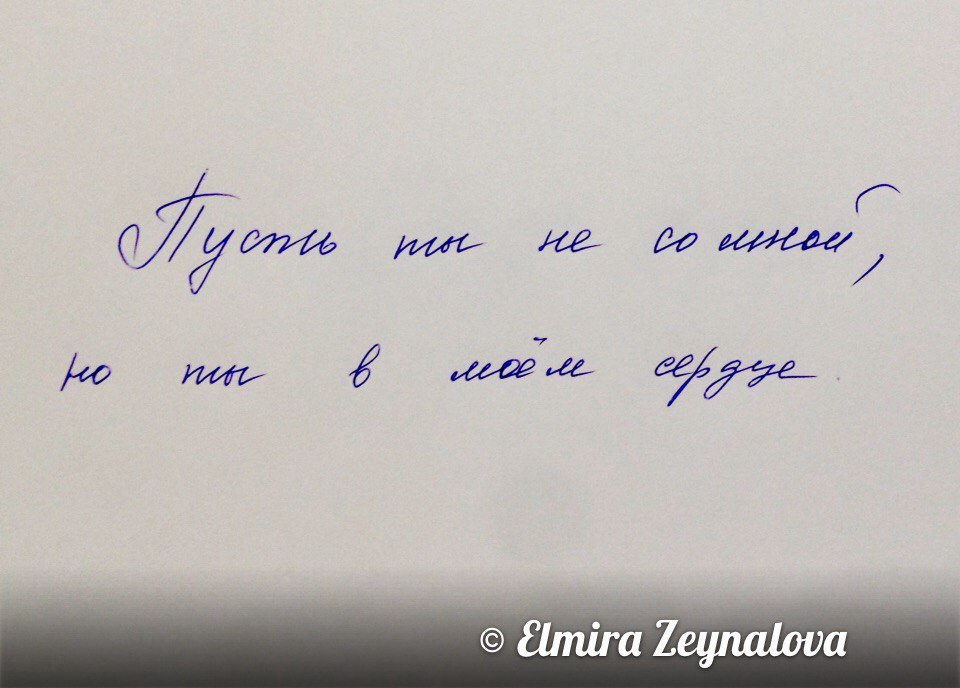 Пусть ты не со мной,
но ты в моём сердце
© Elmira Zeynalova